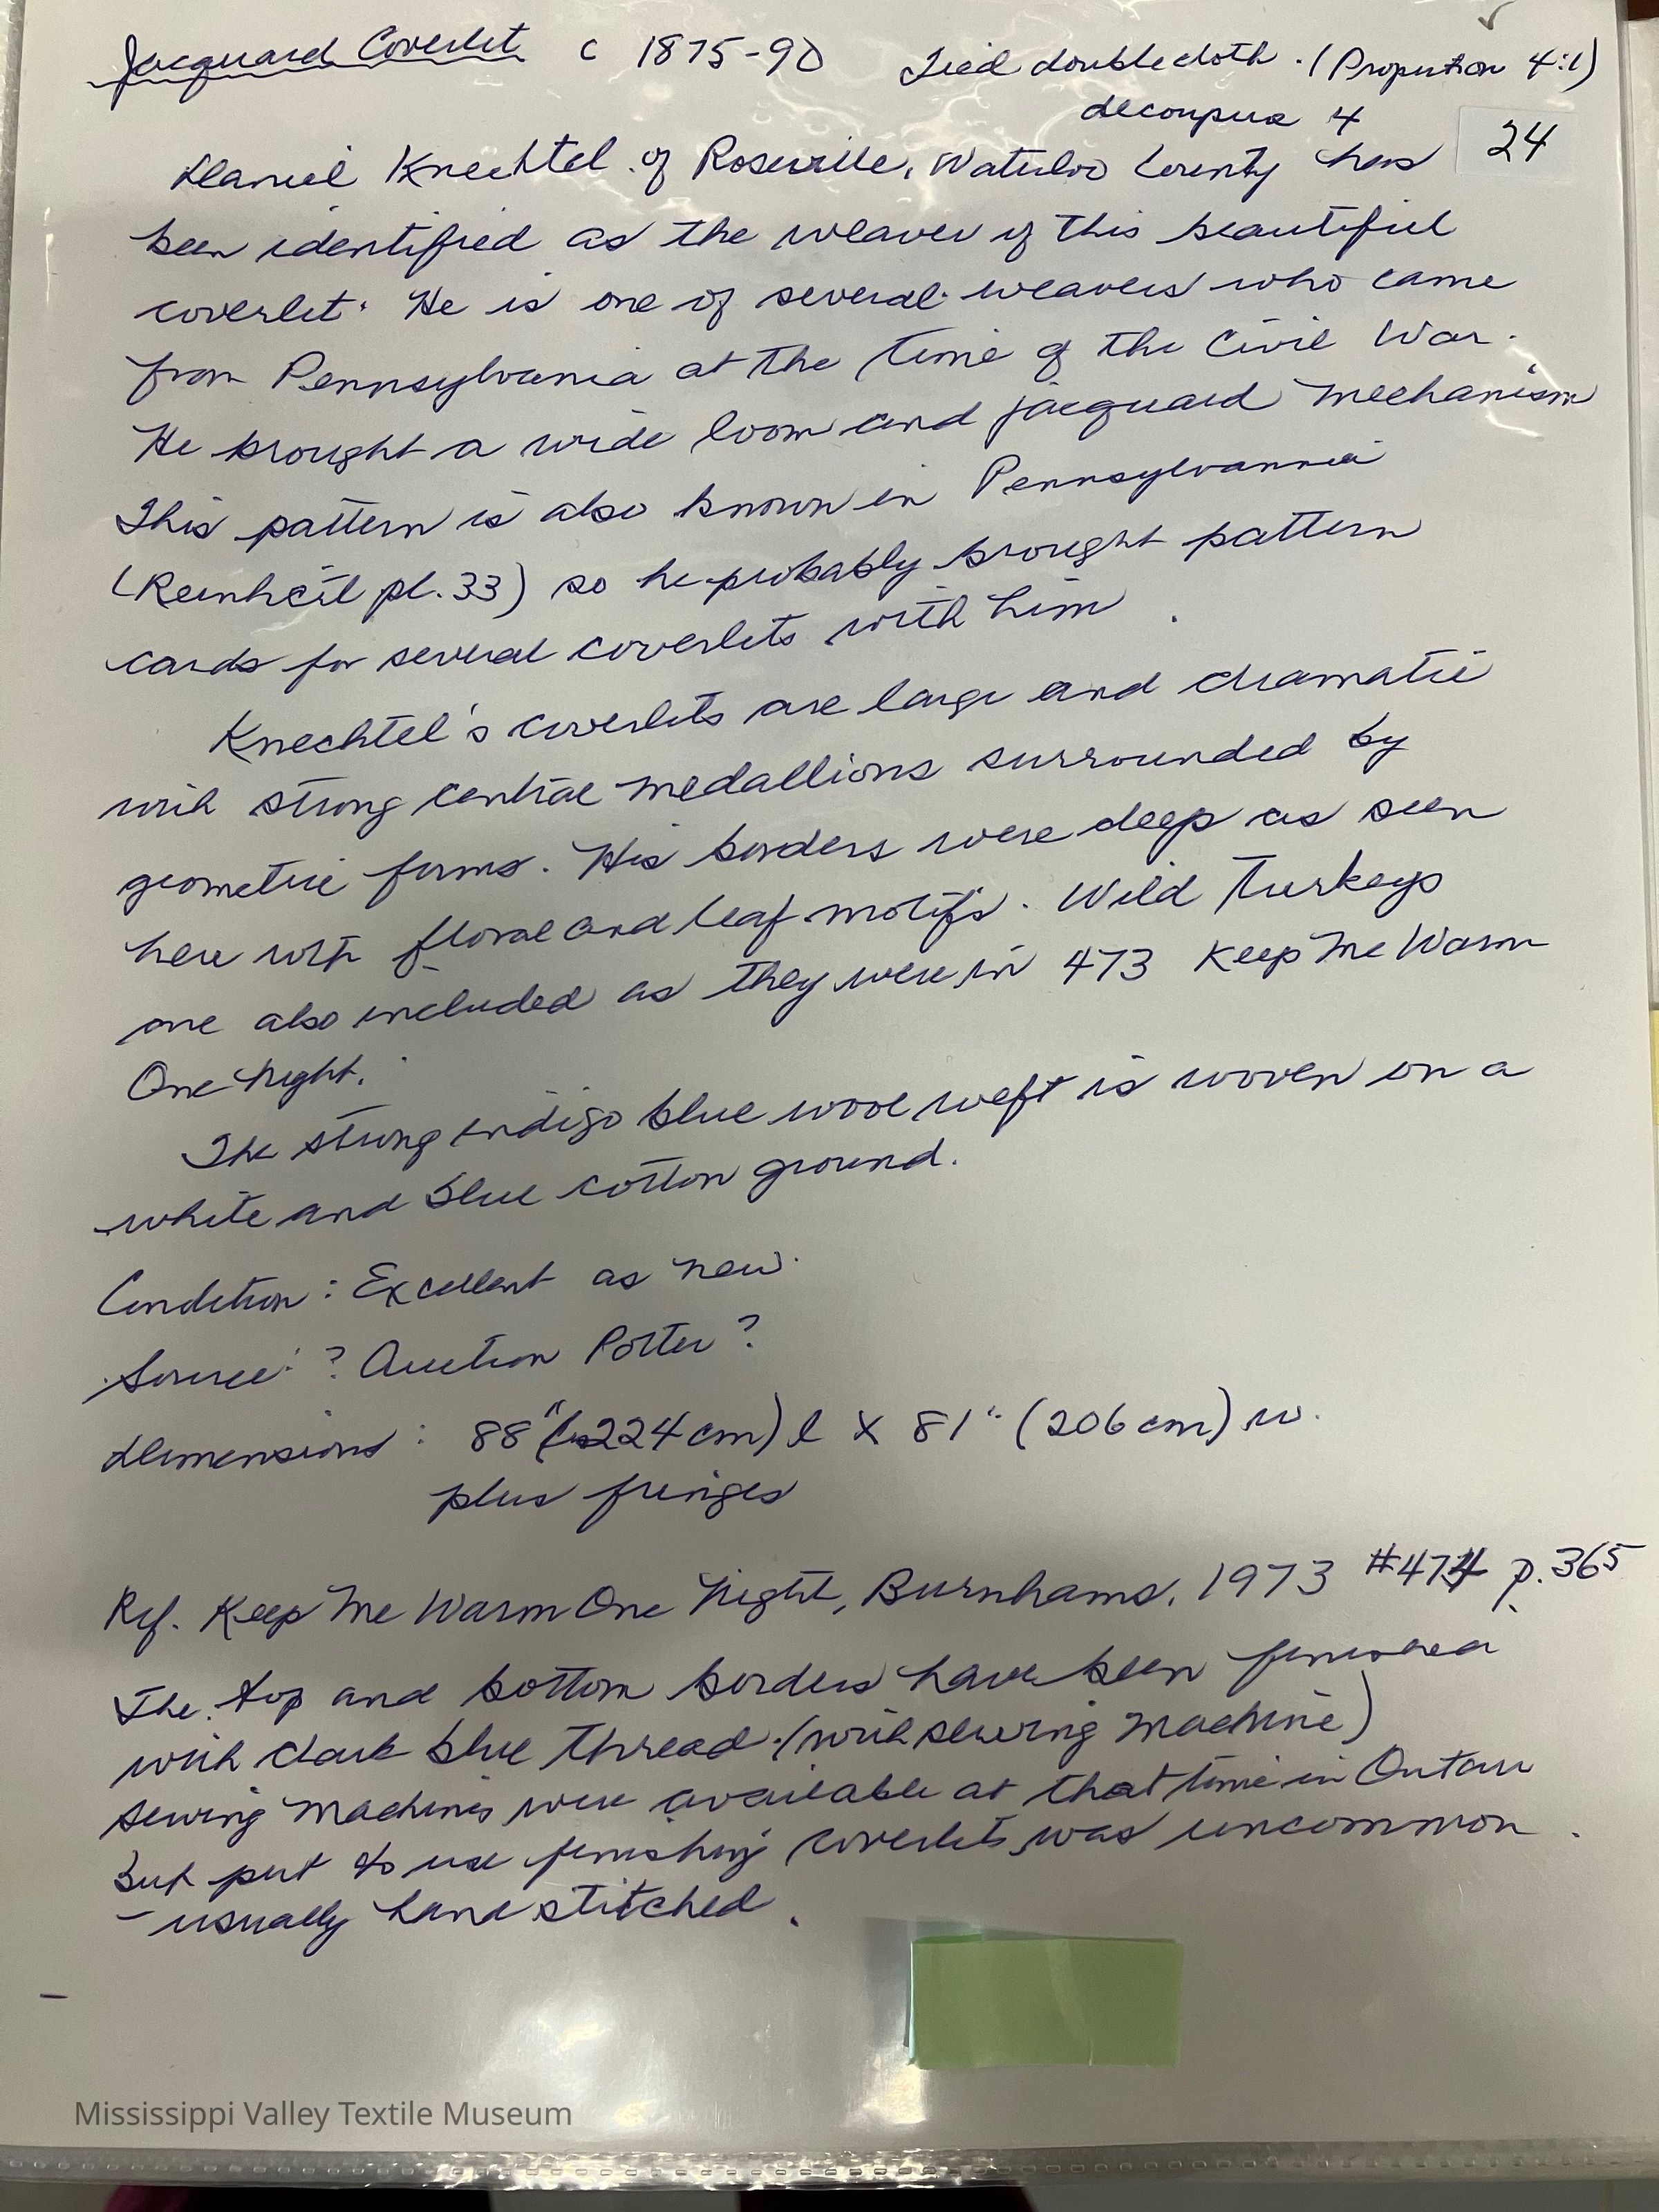 Jacquard Coverlet c 1875-90 Tied doublecloth. (Proportion 4:1)
decoupure 4
24
Daniel Knechtel of Roseville, Waterloo County has
been identified as the weaver of this beautiful
coverlet. He is one of several weavers who came
from Pennsylvania at the time of the Civil War.
He brought a wide loom and jacquard mechanism
This pattern is also known in Pennsylvannia
(Reinheil pl. 33) so he probably brought pattern
cards for several coverlets with him.
Knechtel's coverlets are large and dramatic
with strong central medallions surrounded by
geometric forms. His borders were deep as seen
here with floral and leaf motifs. Wild Turkeys
are also included as they were in 473 Keep Me Warm
One Night.
The strong indigo blue wool weft is woven on a
white and blue cotton ground.
Condition: Excellent as new.
Source: ? Auction Porter?
Dimensions: 88" (224 cm) l X 81" (206 cm) w.
plus fringes
Ref. Keep Me Warm One Night, Burnhams, 1973 #474 p. 365
The top and bottom borders have been finished
with dark blue thread. (with sewing machine)
Sewing machines were available at that time in Ontario
but put to use finishing coverlets was uncommon.
- usually hand stitched.
Mississippi Valley Textile Museum